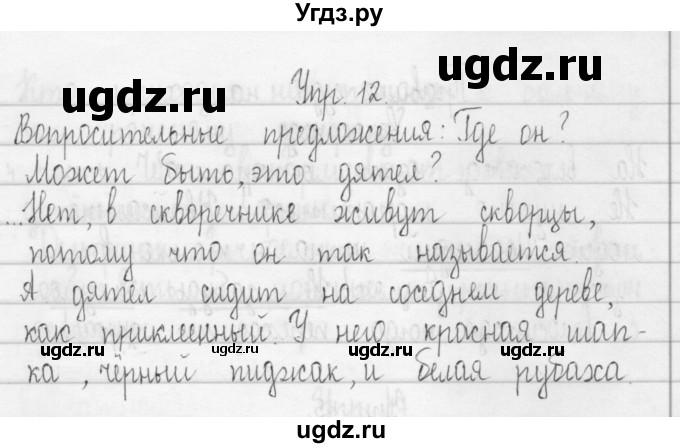 Угдз.ру
ugdz.ru ugdz.ru
Упр. 12.
Вопросительные предложения: Где он?
ugdz.ru ugdz.ru ugdz.ru
Может быть, это дятел?
...Нет, в скворечнике живут скворцы,
потому что он так называется.
ugdz.ru ugdz.ru
А дятел сидит на соседнем дереве,
как приклеенный. У него красная шап-
ugdz.ru ugdz.ru ugdz.ru ugdz.ru
ка, чёрный пиджак, и белая рубаха.
ugdz.ru